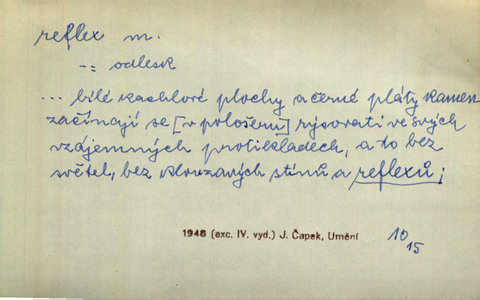 reflex m.
-= odlesk
... bílé kachlové plochy a černé pláty kamen
začínají se [v pološeru] rýsovati ve svých
vzájemných protikladech, a to bez
světel, bez klouzavých stínů a reflexů;
1948 (exc. IV. vyd.) J. Čapek, Umění
10
15